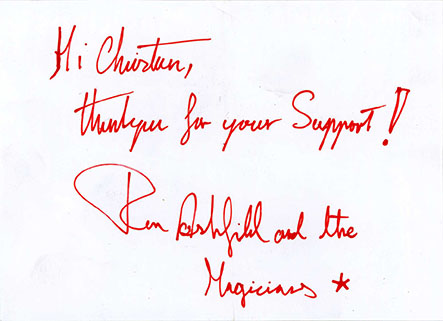 Hi Christian,
thankyou for your Support!
Ben Ashfield and the
Magicians ★